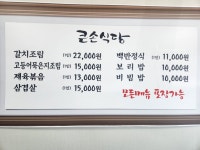 큰손식당
갈치조림 (1인) 22,000원
고등어묵은지조림 (1인) 15,000원
제육볶음 (1인) 13,000원
삼겹살 (1인) 15,000원
백반정식 (1인) 11,000원
보리밥 10,000원
비빔밥 10,000원
모든메뉴 포장가능